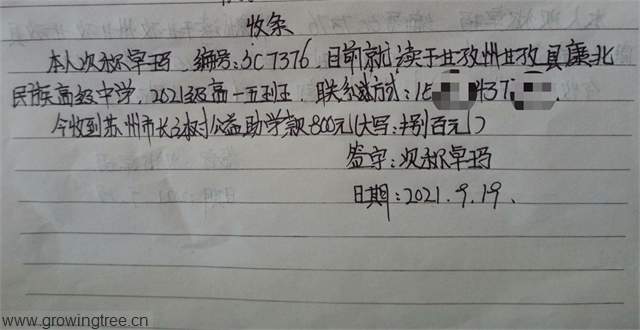 收条
本人次称卓玛，编号：SC7376，目前就读于甘孜州甘孜县康北
民族高级中学，2021级高一五班，联系方式：15 437
今收到苏州市长三树公益助学款800元（大写：捌百元）
签字：次称卓玛
日期：2021.9.19.
www.growingtree.cn